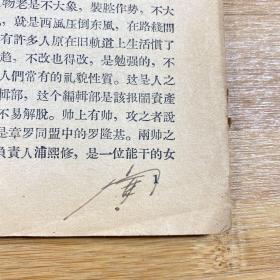 物老是不大象，装腔作势，不大
，就是西風压倒东風，在路綫問
有許多人原在旧軌道上生活慣了
趋，不改也得改，是勉强的，不
人們常有的礼貌性質。这是人之
輯部，这个編輯部是該报閙資產
不易解脫。帅上有帅，攻之者說
是章罗同盟中的罗隆基。兩帅之
負責人浦熙修，是一位能干的女